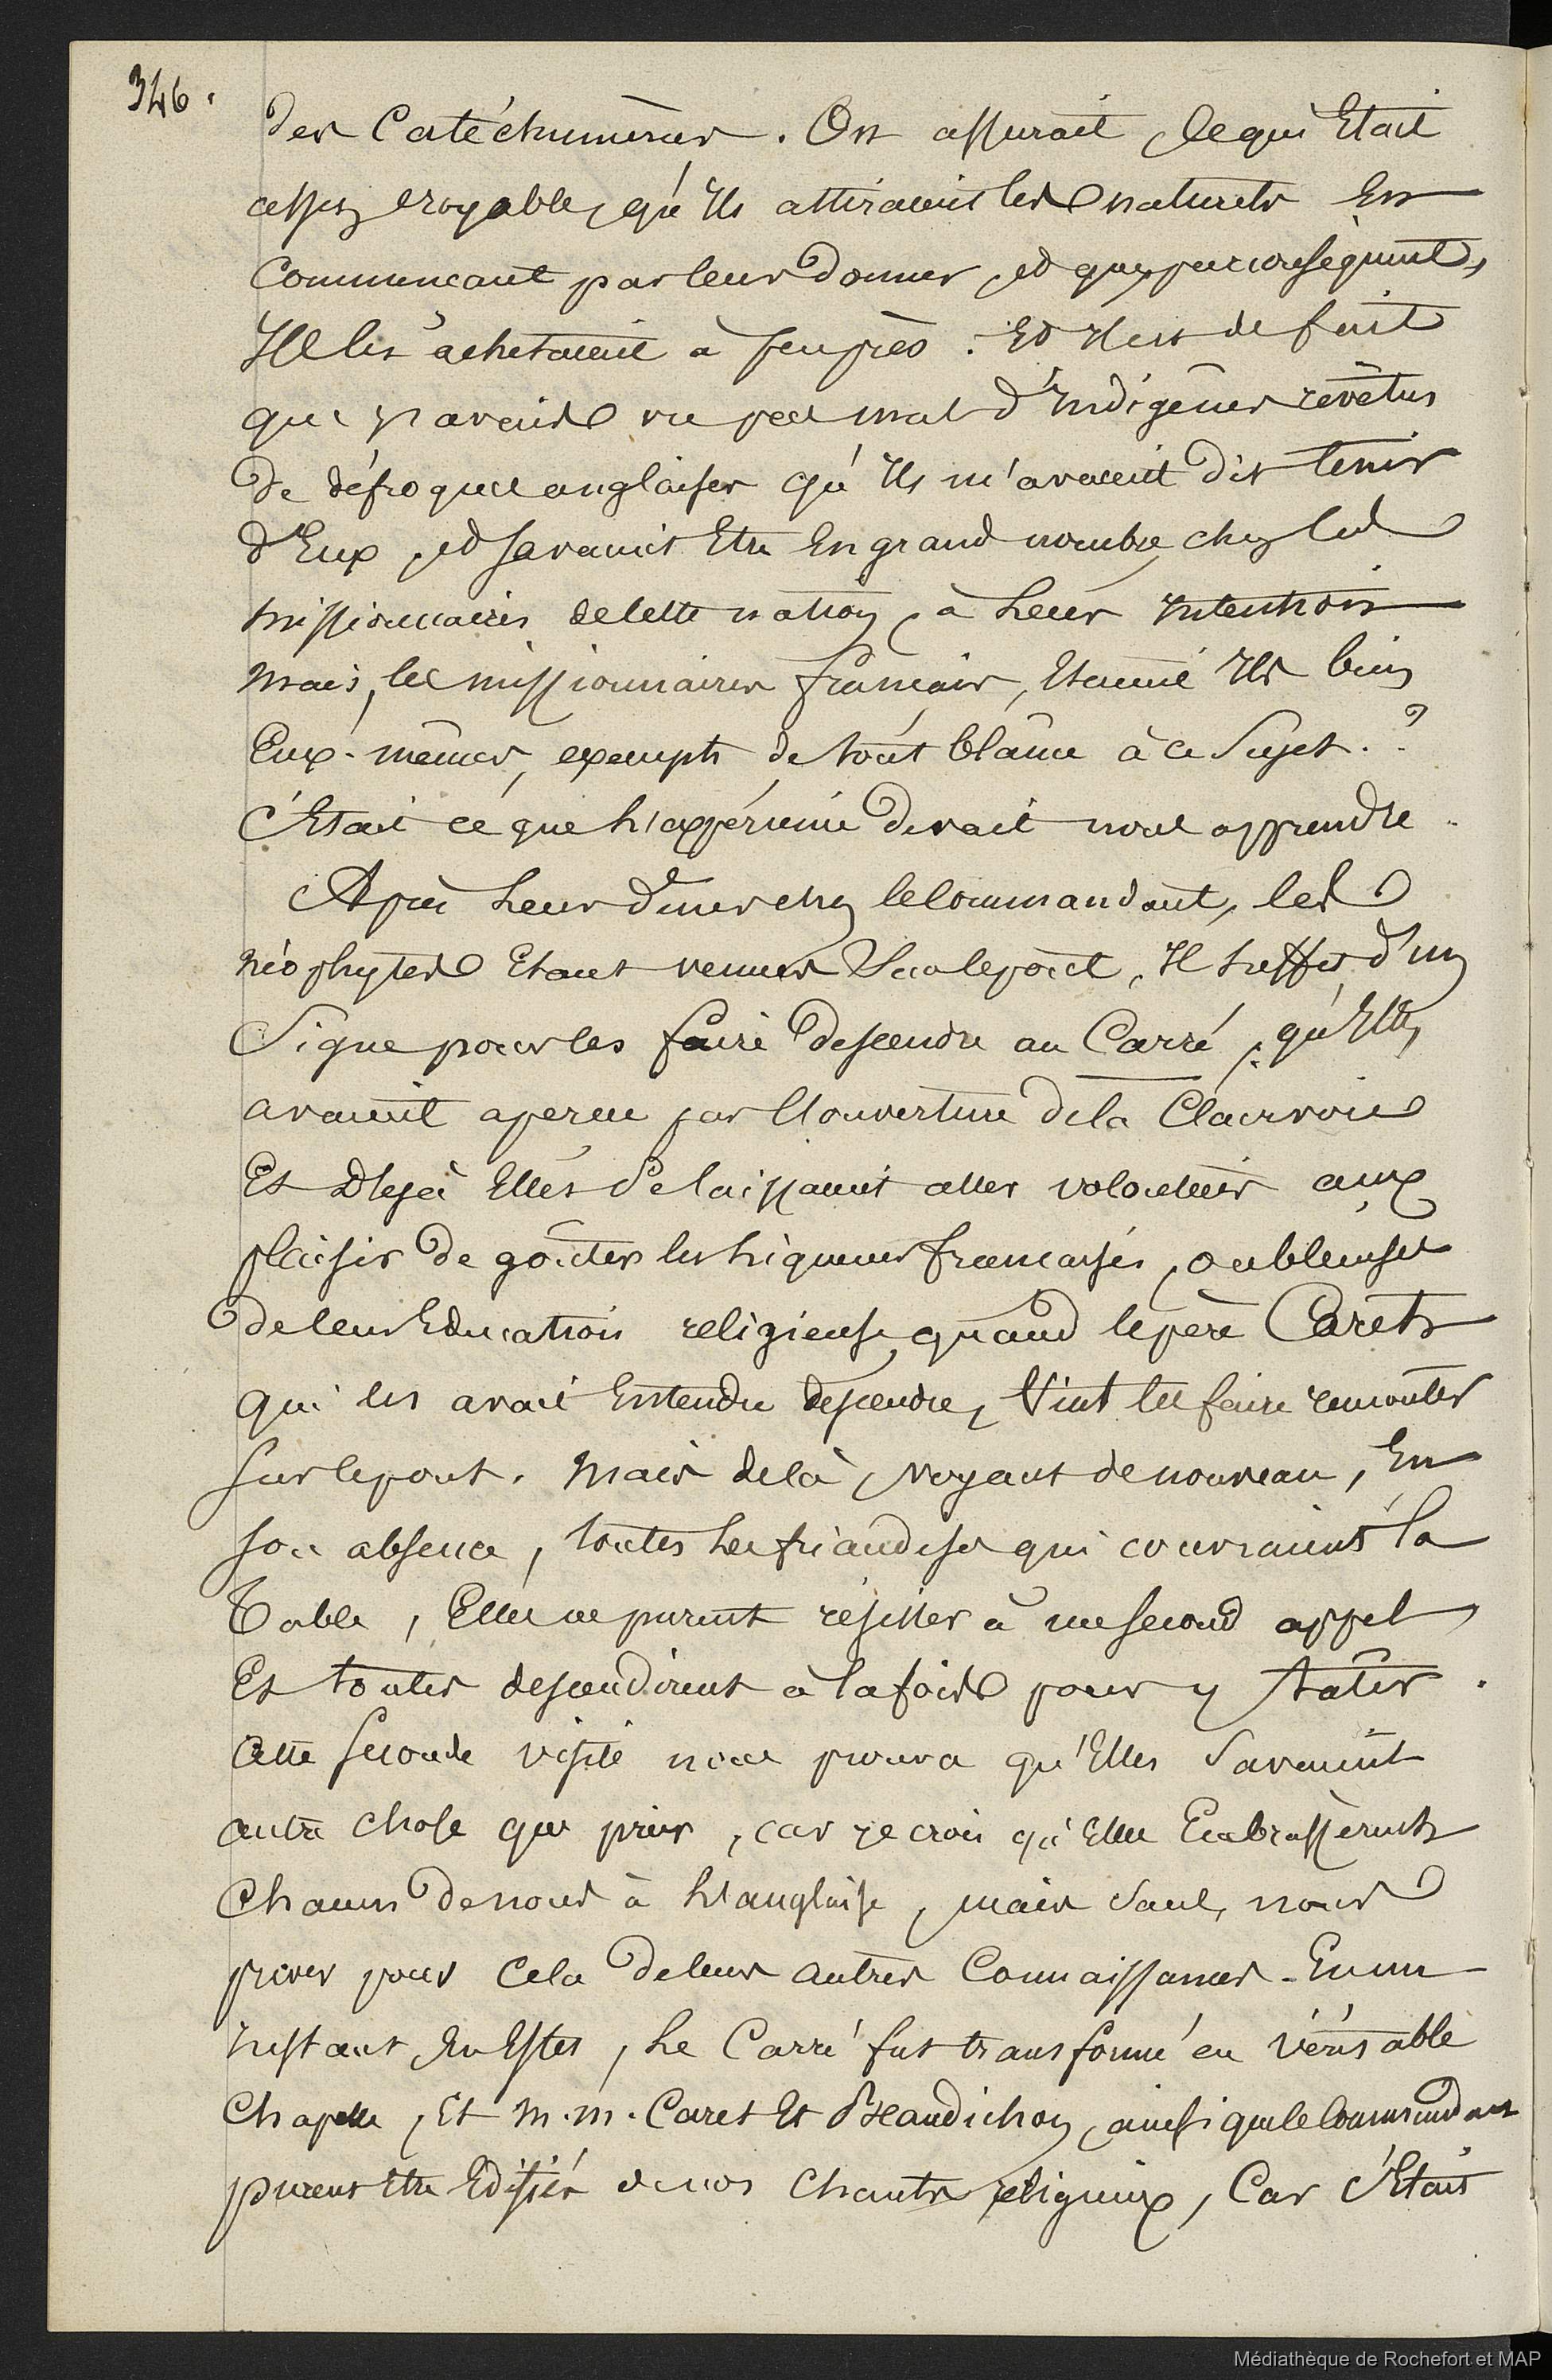 346.
des Catéchumènes. On assurait, ce qui Etait
assez croyable, qu'Ils attiraient les naturels En
Commencant par leur donner, et que, par conséquent,
Il les achetaient à peu près. Et Il est de fait
que j'avais vu pas mal d'Indigènes revêtus
de défroques anglaises qu'Ils m'avaient dit tenir
d'Eux, et savaient Etre En grand nombre chez les
missionnaires de cette nation, à Leur Intention
mais, les missionnaires francais, Etaient Ils bien
Eux-mêmes, exempts de tout blâme à ce Sujet.?
C'Etait ce que L'expérience devait nous apprendre.
Après Leur diner chez le Commandant, les
néophytes Etant venues Sur le pont, Il suffit d'un
Signe pour les faire descendre au Carré, qu'Elles
avaient apercu par L'ouverture de la Clairvoie
Et Déjà Elles Se laissaient aller volontiers aux
plaisir de goûter les liqueurs francaises, oublieuses
de leur Education religieuse, quand le père Caret
qui les avait Entendu descendre, Vint les faire remonter
sur le pont. Mais de là, voyant de nouveau, En
son absence, toutes Les friandises qui couvraient la
Table, Elles ne purent résister à un second appel
Et toutes descendirent à la fois pour y tâter.
Cette seconde visite nous prouva qu'Elles Savaient
autre chose que prier, car je crois qu'Elles Embrassèrent
Chacun de nous à L'anglaise, mais Sans nous
priver pour Cela de leurs autres Connaissances. En un
Instant, le Carré fut transformé en véritable
Chapelle, Et M.M. Caret Et Beaudichon, ainsi que le Commandant
purent Etre Edifiés de nos Chants religieux, Car C'Etait
Médiathèque de Rochefort et MAP